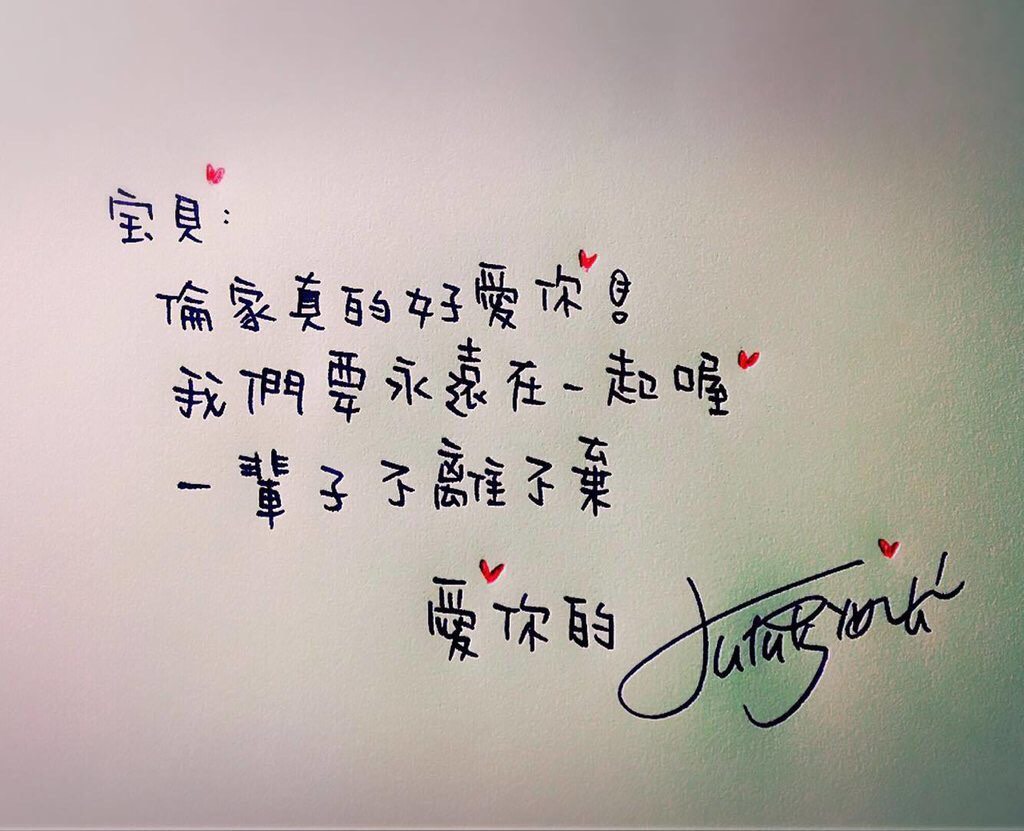 宝貝:
倫家真的好愛你!
我們要永遠在一起喔
一輩子不離不棄
愛你的